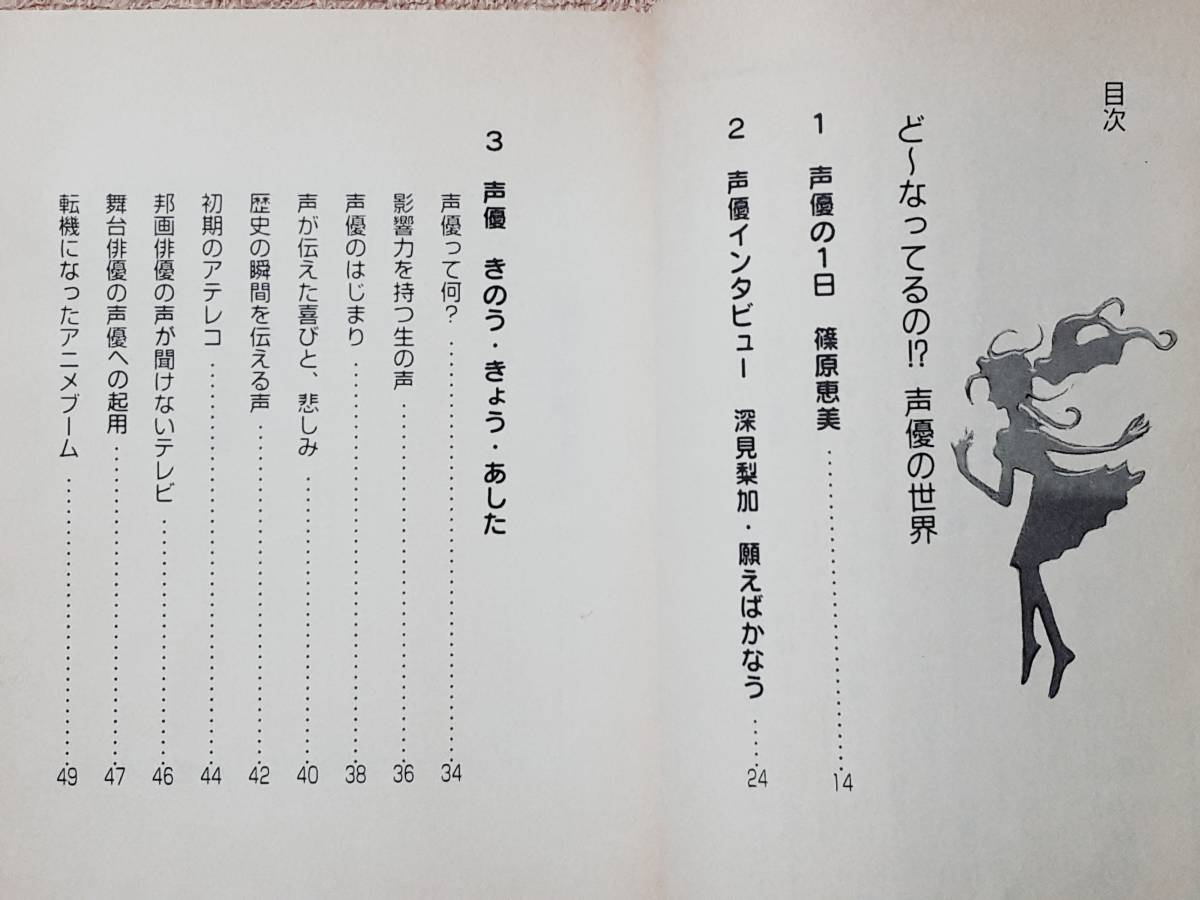 目次
ど〜なってるの!? 声優の世界
1 声優の1日 篠原恵美 ……………………………… 14
2 声優インタビュー 深見梨加・願えばかなう …… 24
3 声優 きのう・きょう・あした
声優って何? ……………………………… 34
影響力を持つ生の声 ……………………………… 36
声優のはじまり ……………………………… 38
声が伝えた喜びと、悲しみ ……………………………… 40
歴史の瞬間を伝える声 ……………………………… 42
初期のアテレコ ……………………………… 44
邦画俳優の声が聞けないテレビ ……………………………… 46
舞台俳優の声優への起用 ……………………………… 47
転機になったアニメブーム ……………………………… 49